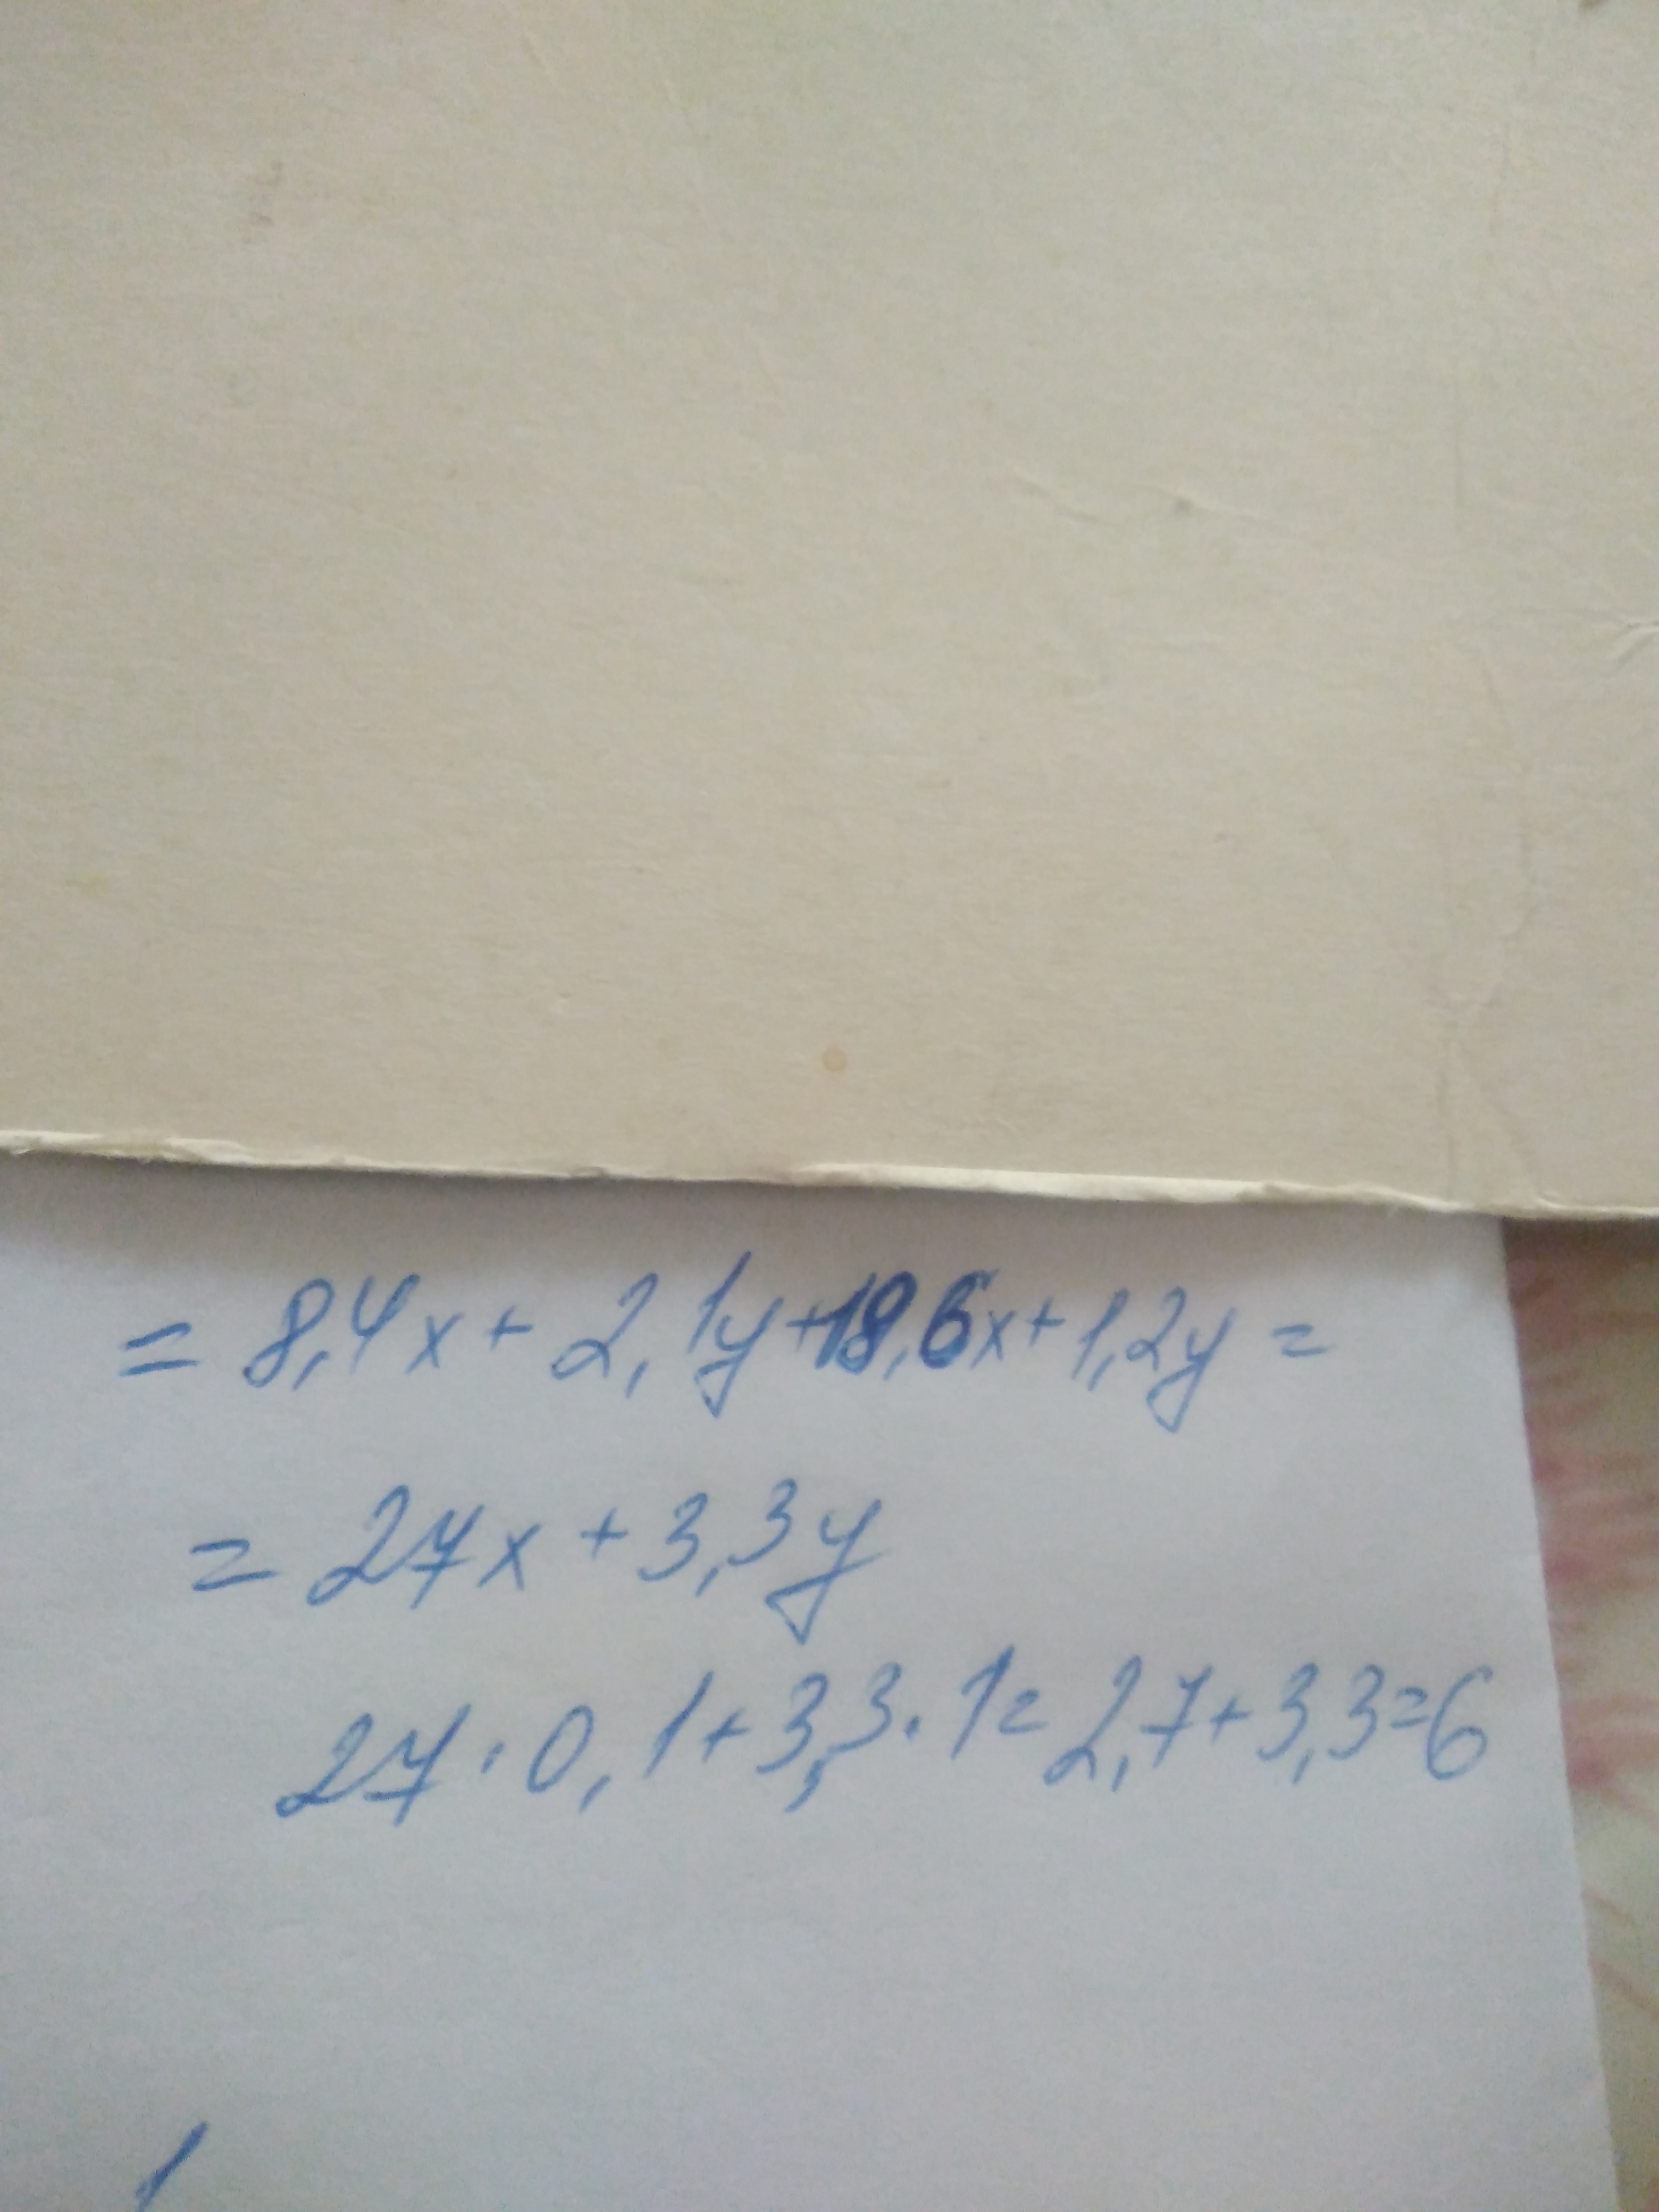 = 8,4x + 2,1y + 18,6x + 1,2y =
= 27x + 3,3y
27 · 0,1 + 3,3 · 1 = 2,7 + 3,3 = 6